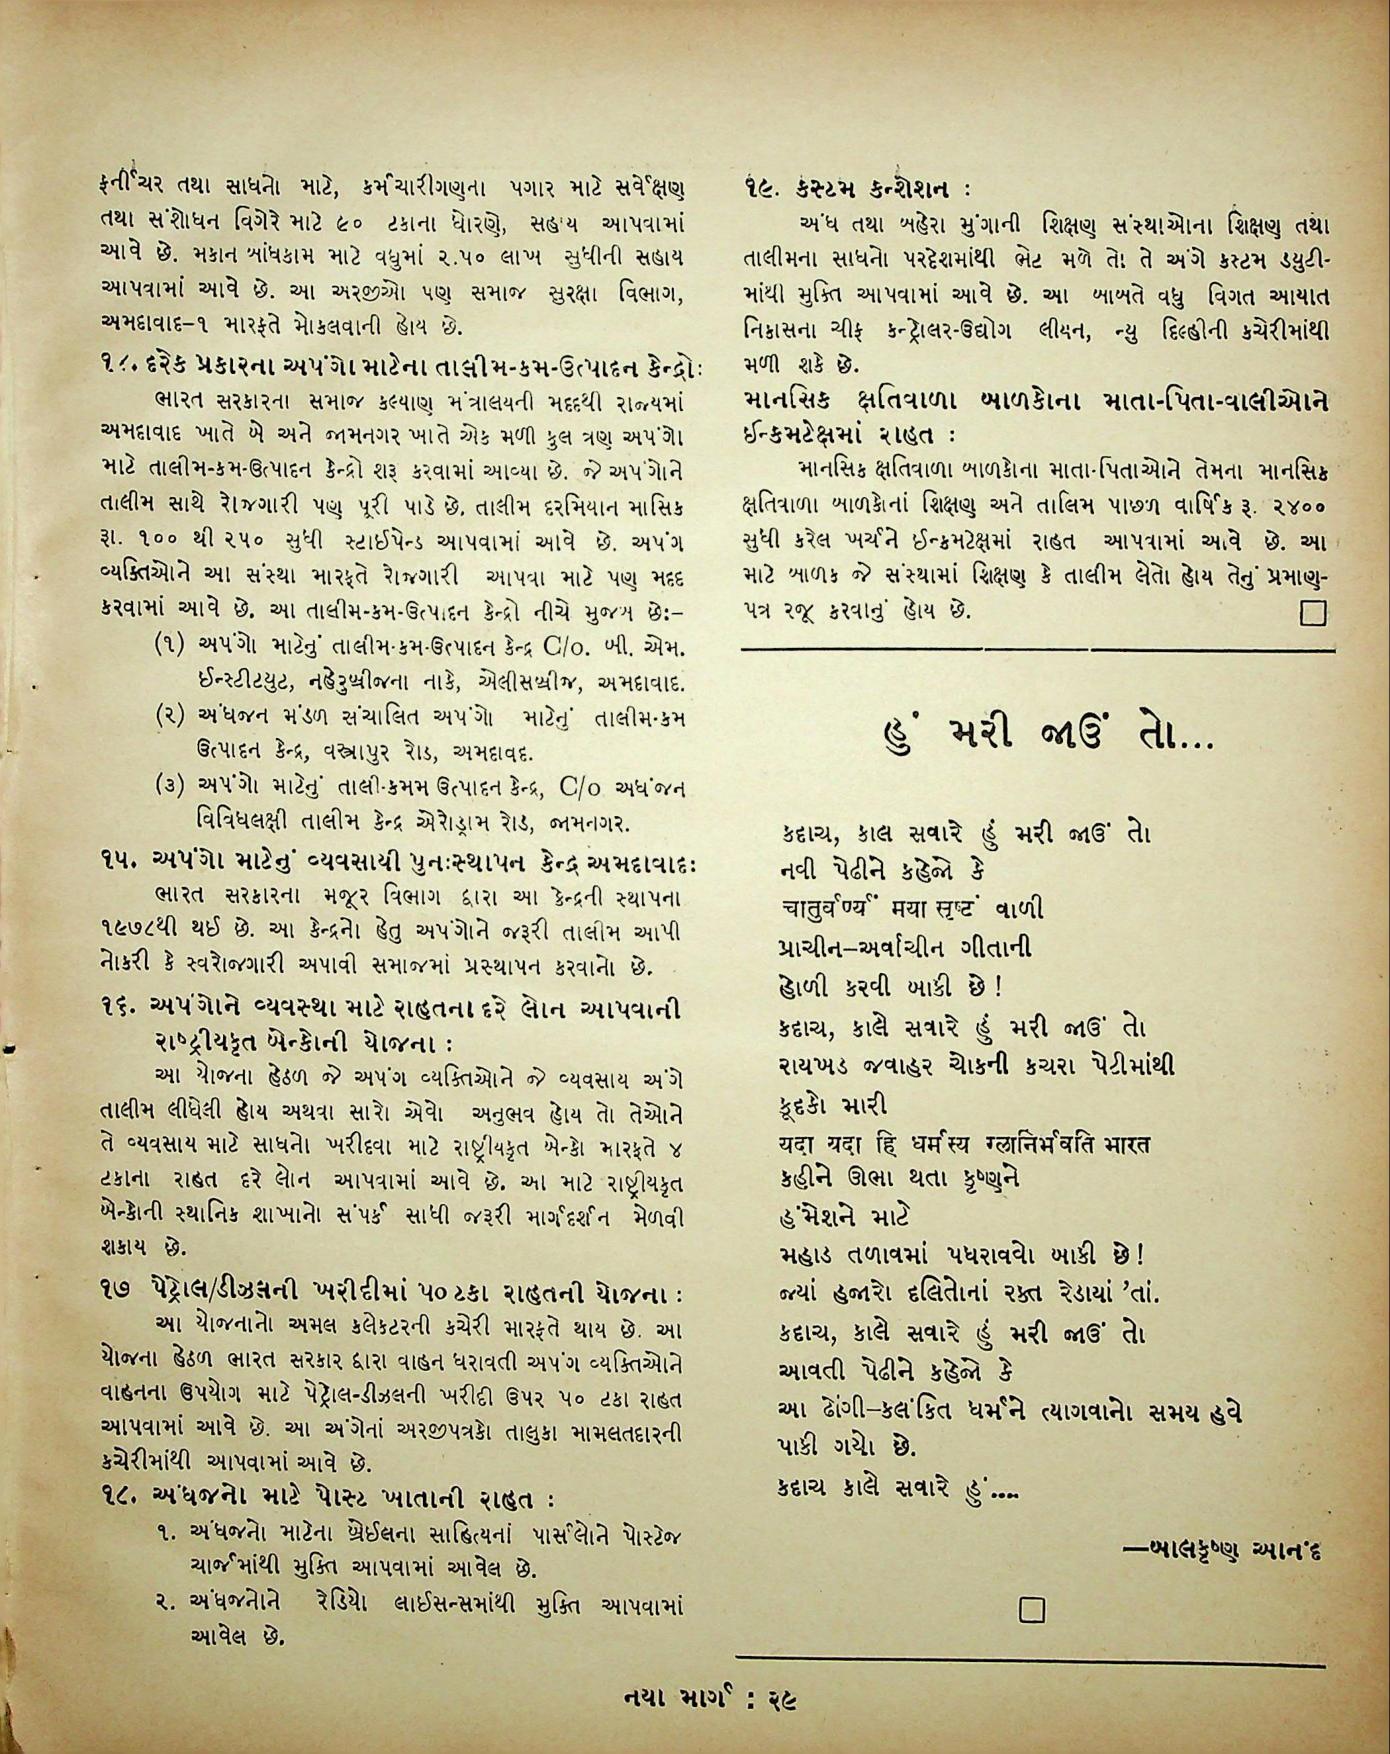 ફર્નીચર તથા સાધનો માટે, કર્મચારીગણના પગાર માટે સર્વેક્ષણ
તથા સંશોધન વિગેરે માટે ૯૦ ટકાના ધોરણે, સહાય આપવામાં
આવે છે. મકાન બાંધકામ માટે વધુમાં ૨.૫૦ લાખ સુધીની સહાય
આપવામાં આવે છે. આ અરજીઓ પણ સમાજ સુરક્ષા વિભાગ,
અમદાવાદ-૧ મારફતે મોકલવાની હોય છે.
દરેક પ્રકારના અપંગો માટેના તાલીમ-કમ-ઉત્પાદન કેન્દ્રો:
ભારત સરકારના સમાજ કલ્યાણ મંત્રાલયની મદદથી રાજ્યમાં
અમદાવાદ ખાતે બે અને જામનગર ખાતે એક મળી કુલ ત્રણ અપંગો
માટે તાલીમ-કમ-ઉત્પાદન કેન્દ્રો શરૂ કરવામાં આવ્યા છે. જે અપંગોને
તાલીમ સાથે રોજગારી પણ પૂરી પાડે છે. તાલીમ દરમિયાન માસિક
રૂા. ૧૦૦ થી ૨૫૦ સુધી સ્ટાઈપેન્ડ આપવામાં આવે છે. અપંગ
વ્યક્તિઓને આ સંસ્થા મારફતે રોજગારી આપવા માટે પણ મદદ
કરવામાં આવે છે. આ તાલીમ-કમ-ઉત્પાદન કેન્દ્રો નીચે મુજબ છે:–
(૧) અપંગો માટેનું તાલીમ-કમ-ઉત્પાદન કેન્દ્ર C/o. બી. એમ.
ઈન્સ્ટીટયુટ, નહેરુબ્રીજના નાકે, એલીસબ્રીજ, અમદાવાદ.
(૨) અંધજન મંડળ સંચાલિત અપંગો માટેનું તાલીમ-કમ
ઉત્પાદન કેન્દ્ર, વસ્ત્રાપુર રોડ, અમદાવદ.
(૩) અપંગો માટેનું તાલી-કમમ ઉત્પાદન કેન્દ્ર, C/o અધંજન
વિવિધલક્ષી તાલીમ કેન્દ્ર એરોડ્રામ રોડ, જામનગર.
૧૫. અપંગો માટેનું વ્યવસાયી પુનઃસ્થાપન કેન્દ્ર અમદાવાદ:
ભારત સરકારના મજૂર વિભાગ દ્વારા આ કેન્દ્રની સ્થાપના
૧૯૭૮થી થઈ છે. આ કેન્દ્રનો હેતુ અપંગોને જરૂરી તાલીમ આપી
નોકરી કે સ્વરોજગારી અપાવી સમાજમાં પ્રસ્થાપન કરવાનો છે.
૧૬. અપંગોને વ્યવસ્થા માટે રાહતના દરે લોન આપવાની
રાષ્ટ્રીયકૃત બેન્કોની યોજના :
આ યોજના હેઠળ જે અપંગ વ્યક્તિઓને જે વ્યવસાય અંગે
તાલીમ લીધેલી હોય અથવા સારો એવો અનુભવ હોય તો તેઓને
તે વ્યવસાય માટે સાધનો ખરીદવા માટે રાષ્ટ્રીયકૃત બેન્કો મારફતે ૪
ટકાના રાહત દરે લોન આપવામાં આવે છે. આ માટે રાષ્ટ્રીયકૃત
બેન્કોની સ્થાનિક શાખાનો સંપર્ક સાધી જરૂરી માર્ગદર્શન મેળવી
શકાય છે.
૧૭ પેટ્રોલ/ડીઝલની ખરીદીમાં ૫૦ ટકા રાહતની યોજના :
આ યોજનાનો અમલ કલેકટરની કચેરી મારફતે થાય છે. આ
યોજના હેઠળ ભારત સરકાર દ્વારા વાહન ધરાવતી અપંગ વ્યક્તિઓને
વાહનના ઉપયોગ માટે પેટ્રોલ-ડીઝલની ખરીદી ઉપર ૫૦ ટકા રાહત
આપવામાં આવે છે. આ અંગેનાં અરજીપત્રકો તાલુકા મામલતદારની
કચેરીમાંથી આપવામાં આવે છે.
૧૮. અંધજનો માટે પોસ્ટ ખાતાની રાહત :
૧. અંધજનો માટેના બ્રેઈલના સાહિત્યનાં પાર્સલોને પોસ્ટેજ
ચાર્જમાંથી મુક્તિ આપવામાં આવેલ છે.
૨. અંધજનોને રેડિયો લાઈસન્સમાંથી મુક્તિ આપવામાં
આવેલ છે.
૧૯. કસ્ટમ કન્શેશન :
અંધ તથા બહેરા મુંગાની શિક્ષણ સંસ્થાઓના શિક્ષણ તથા
તાલીમના સાધનો પરદેશમાંથી ભેટ મળે તો તે અંગે કસ્ટમ ડયુટી-
માંથી મુક્તિ આપવામાં આવે છે. આ બાબતે વધુ વિગત આયાત
નિકાસના ચીફ કન્ટ્રોલર-ઉદ્યોગ લીયન, ન્યુ દિલ્હીની કચેરીમાંથી
મળી શકે છે.
માનસિક ક્ષતિવાળા બાળકોના માતા-પિતા-વાલીઓને
ઈન્કમટેક્ષમાં રાહત :
માનસિક ક્ષતિવાળા બાળકોના માતા-પિતાઓને તેમના માનસિક
ક્ષતિવાળા બાળકોનાં શિક્ષણ અને તાલિમ પાછળ વાર્ષિક રૂ. ૨૪૦૦
સુધી કરેલ ખર્ચને ઈન્કમટેક્ષમાં રાહત આપવામાં આવે છે. આ
માટે બાળક જે સંસ્થામાં શિક્ષણ કે તાલીમ લેતો હોય તેનું પ્રમાણ-
પત્ર રજૂ કરવાનું હોય છે.
હું મરી જાઉં તો...
કદાચ, કાલ સવારે હું મરી જાઉં તો
નવી પેઢીને કહેજો કે
चातुर्वर्ण्यं मया सृष्टं વાળી
પ્રાચીન–અર્વાચીન ગીતાની
હોળી કરવી બાકી છે!
કદાચ, કાલે સવારે હું મરી જાઉં તો
રાયખડ જવાહર ચોકની કચરા પેટીમાંથી
કૂદકો મારી
यदा यदा हि धर्मस्य ग्लानिर्भवति भारत
કહીને ઊભા થતા કૃષ્ણને
હંમેશને માટે
મહાડ તળાવમાં પધરાવવો બાકી છે!
જ્યાં હજારો દલિતોનાં રક્ત રેડાયાં 'તાં.
કદાચ, કાલે સવારે હું મરી જાઉં તો
આવતી પેઢીને કહેજો કે
આ ઢોંગી–કલંકિત ધર્મને ત્યાગવાનો સમય હવે
પાકી ગયો છે.
કદાચ કાલે સવારે હું....
—બાલકૃષ્ણ આનંદ
નયા માર્ગ : ૨૯